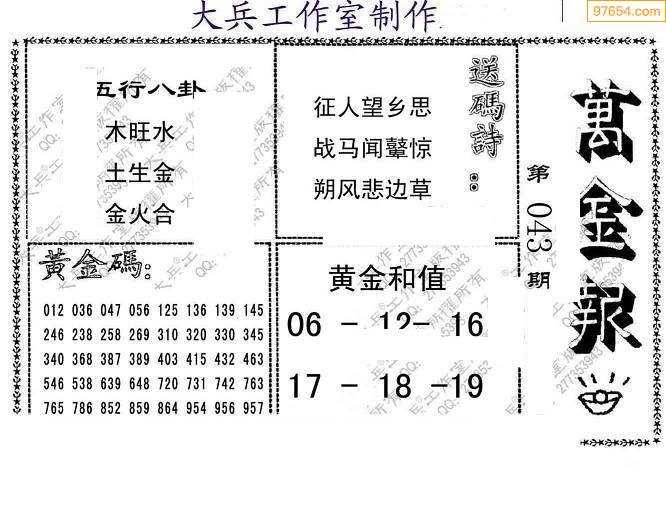 大兵工作室制作
97654.com
五行八卦
木旺水
土生金
金火合
送碼詩：
征人望乡思
战马闻鼙惊
朔风悲边草
萬金报
第043期
黃金碼：
012 036 047 056 125 136 139 145
246 238 258 269 310 320 330 345
340 368 387 389 403 415 432 463
546 538 639 648 720 731 742 763
765 786 852 859 864 954 956 957
黄金和值
06 - 12 - 16
17 - 18 - 19